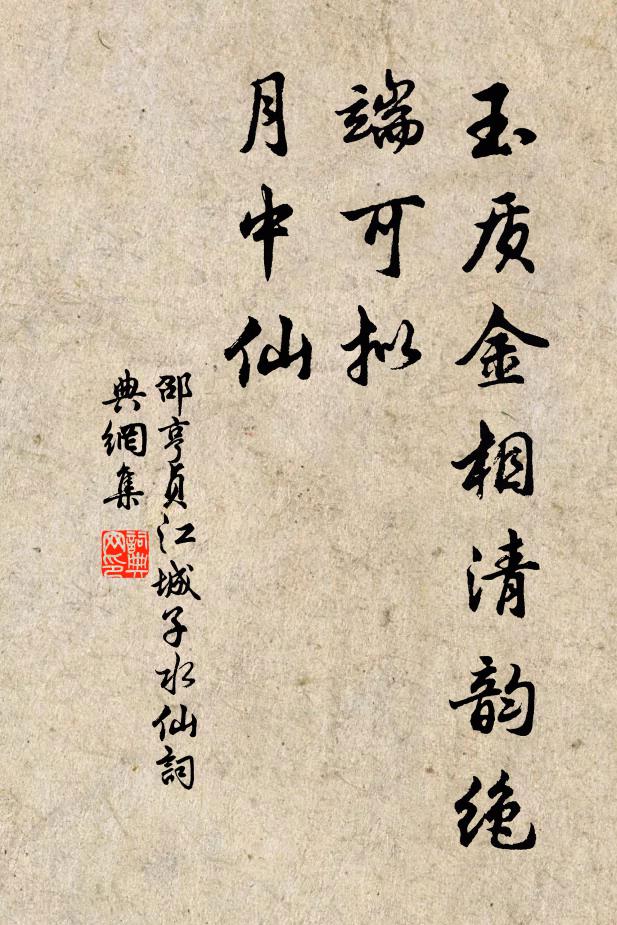 玉质金相清韵绝
端可拟
月中仙
邵亨贞江城子水仙詞
典網集
詞典网印